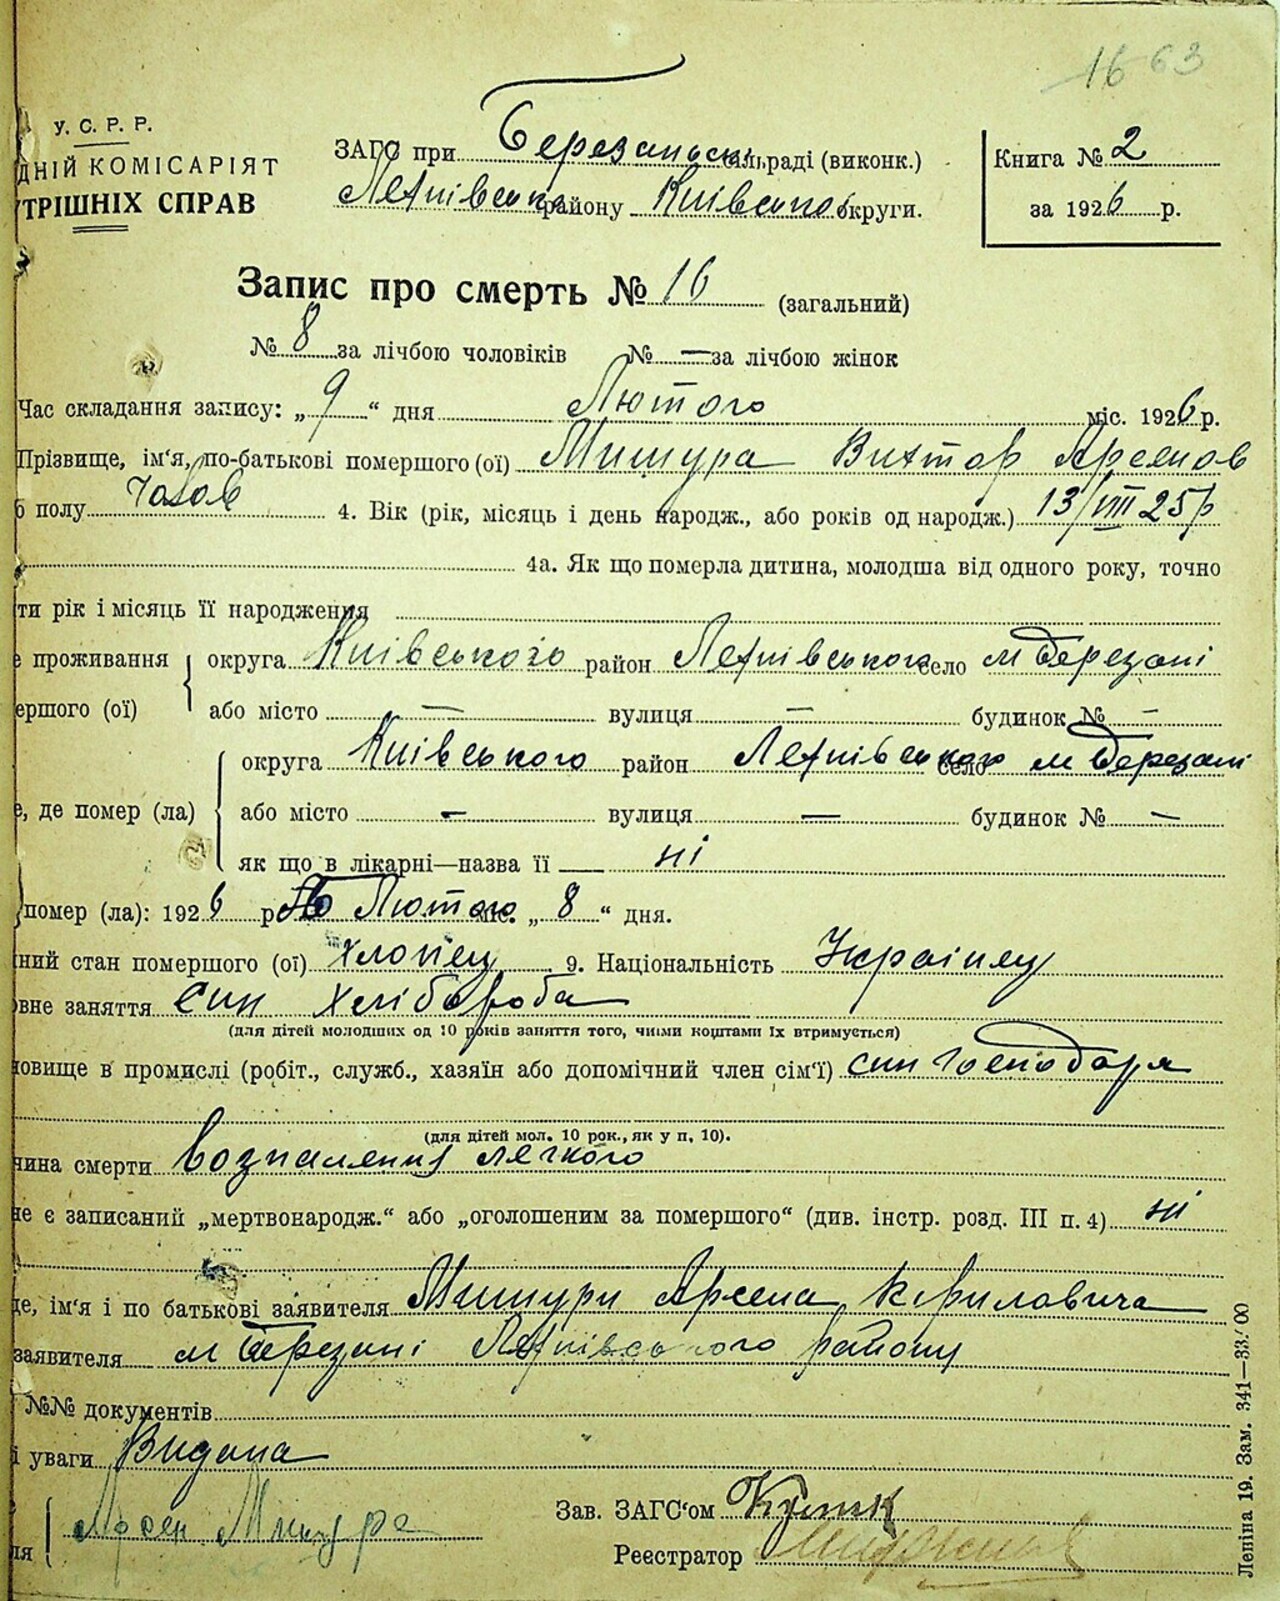 16 63
У. С. Р. Р.
ДНІЙ КОМІСАРІЯТ
ТРІШНІХ СПРАВ
ЗАГС при Березанськ ільраді (виконк.)
району Київської округи.
Книга № 2
за 1926 р.
Запис про смерть № 16 (загальний)
№ 8 за лічбою чоловіків № — за лічбою жінок
Час складання запису: „ 9 “ дня Лютого міс. 1926 р.
Прізвище, ім‘я, по-батькові помершого (ої) Мишура Виктор Арсенов
б полу чолов 4. Вік (рік, місяць і день народж., або років од народж.) 13/VIII 25 р
4а. Як що померла дитина, молодша від одного року, точно
ти рік і місяць її народження
е проживання округа Київського район село м Березані
ершого (ої) або місто — вулиця — будинок № —
округа Київського район село м Березані
е, де помер (ла) або місто — вулиця — будинок № —
як що в лікарні—назва її — ні
помер (ла): 1926 р Лютого міс. „ 8 “ дня.
ний стан помершого (ої) хлопец 9. Національність Украінец
овне заняття син хлібороба
(для дітей молодших од 10 років заняття того, чиїми коштами їх втримується)
новище в промислі (робіт., служб., хазяїн або допомічний член сім‘ї) син господаря
(для дітей мол. 10 рок., як у п. 10).
чина смерти возпаления легкого
не є записаний „мертвонародж.“ або „оголошеним за помершого“ (див. інстр. розд. III п. 4) ні
де, ім‘я і по батькові заявителя Мишури Арсена Кириловича
заявителя м Березані району
№№ документів
і уваги Видана
Арсен Мишура
Зав. ЗАГС‘ом
ля
Реєстратор
Леніна 19. Зам. 341—33.000